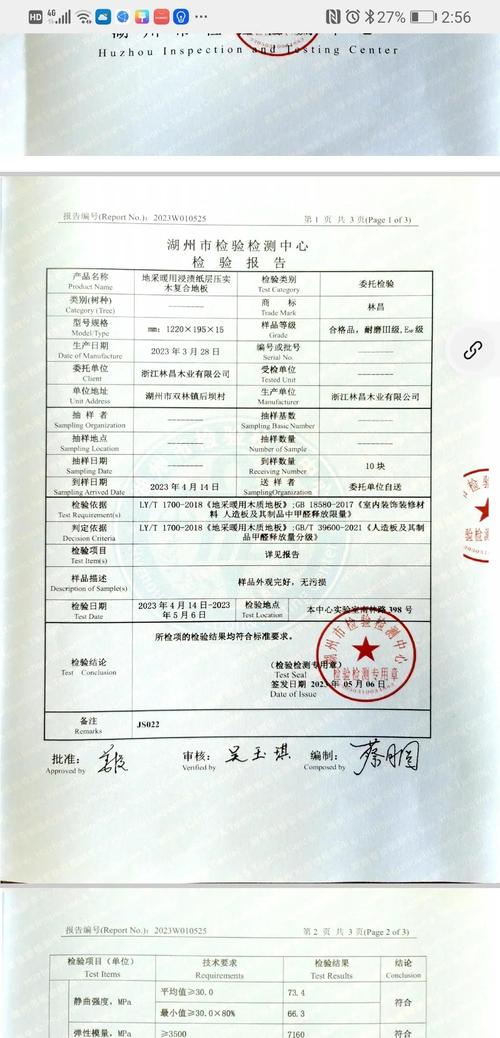 HD 4G 27% 2:56
Huzhou Inspection and Testing Center
报告编号(Report No.): 2023W010525 第 1 页 共 3 页(Page 1 of 3)
湖州市检验检测中心
检 验 报 告
产品名称 Product Name 地采暖用浸渍纸层压实木复合地板 检验类别 Test Category 委托检验
类别(树种) Category (Tree) ———— 商 标 Trade Mark 林昌
型号规格 Model/Type mm: 1220×195×15 样品等级 Grade 合格品, 耐磨Ⅲ级,
生产日期 Date of Manufacture 2023 年 3 月 28 日 编号或批号 Serial No. ————
委托单位 Client 浙江林昌木业有限公司 受检单位 Tested Unit ————
单位地址 Unit Address 湖州市双林镇后坝村 生产单位 Manufacturer 浙江林昌木业有限公司
抽 样 者 Sampling Organization ———— 抽样基数 Sampling Basic Number ————
抽样地点 Sampling Location ———— 抽样数量 Number of Sample ————
抽样日期 Sampling Date ———— 到样数量 Receiving Number 10 块
到样日期 Sampling Arrived Date 2023 年 4 月 14 日 送 样 者 SamplingOrganization 委托单位自送
检验依据 Test Requirement(s) LY/T 1700-2018《地采暖用木质地板》;GB 18580-2017《室内装饰装修材料 人造板及其制品中甲醛释放限量》
判定依据 Decision Criteria LY/T 1700-2018《地采暖用木质地板》;GB/T 39600-2021《人造板及其制品甲醛释放量分级》
检验项目 Test Item(s) 详见报告
样品描述 Description of Sample(s) 样品外观完好, 无污损
检验日期 Test Date 2023 年 4 月 14 日-2023 年 5 月 6 日 检验地点 Test Location 本中心实验室南林路 398 号
检验结论 Test Conclusion 所检项的检验结果均符合标准要求。
湖州市检验检测中心
检验检测专用章
(检验检测专用章)
Test Seal
签发日期 2023 年 05 月 06 日
Date of Issue
备注 Remarks JS022
批准: Approved by 审核: Verified by 吴玉琪 编制: Composed by
报告编号(Report No.): 2023W010525 第 2 页 共 3 页(Page 2 of 3)
检验项目(单位) Test Items 技术要求 Requirements 检验结果 Test Results 结论 Conclusion
静曲强度, MPa 平均值≥30.0 73.4 符合
最小值≥30.0×80% 66.3
弹性模量, MPa ≥3500 7160 符合